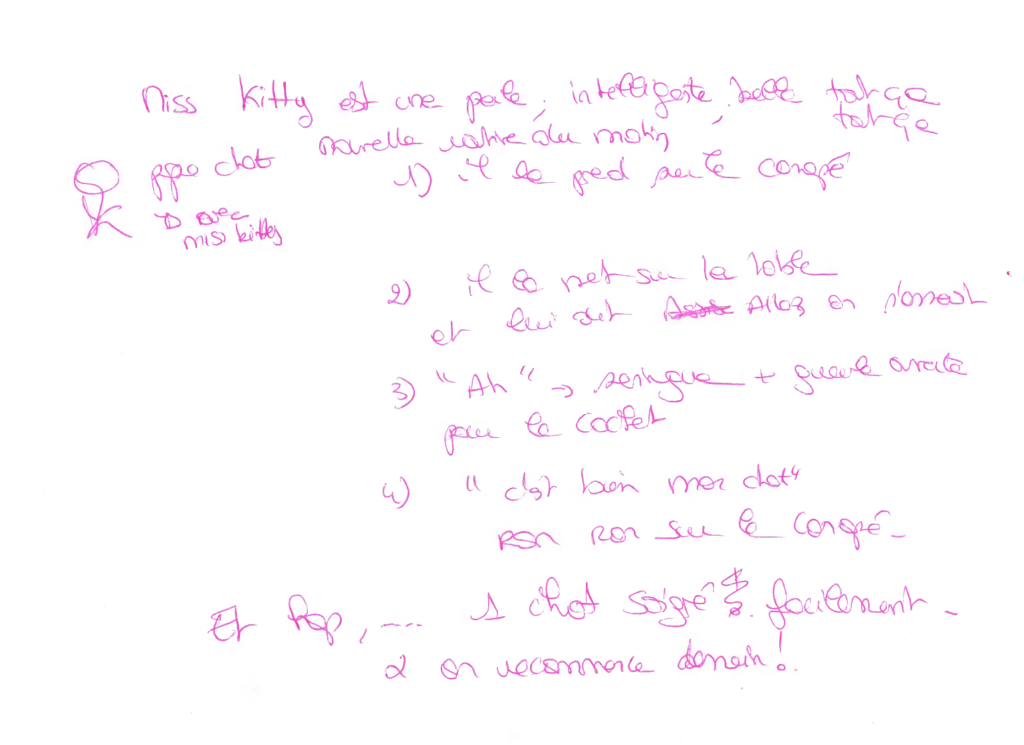 Miss Kitty est une perle, intelligente, belle tatata
tatata
nouvelle routine du matin
ppa chat
→ avec
miss kitty
1) il le prend sur le canapé
2) il le met sur la table
et lui dit Allez on s'assoit
3) "Ah" → seringue + gueule ouverte
pour le cachet
4) "c'est bien mon chat"
RON RON sur le canapé -
Et hop, .... 1 chat soigné & facilement -
2 on recommence demain !